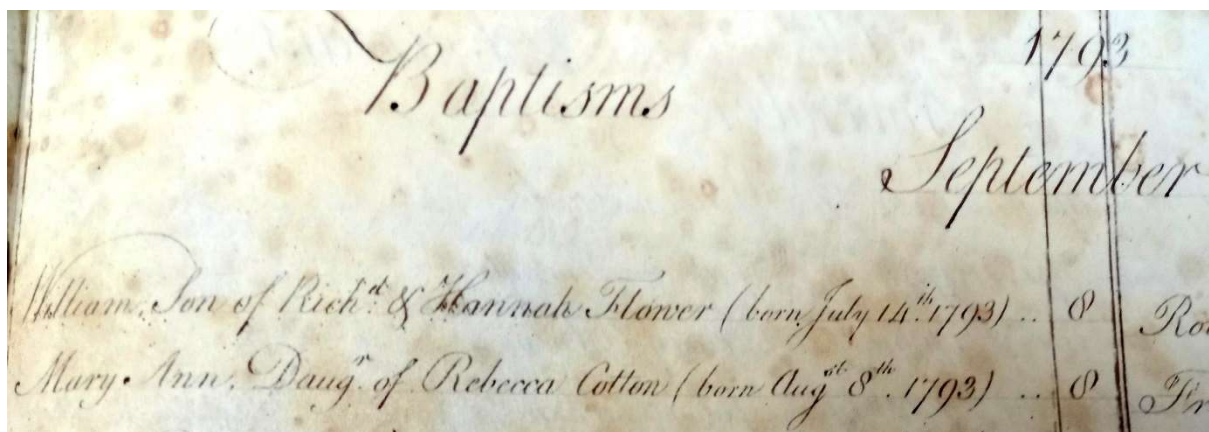 Baptisms
1793
September
William, Son of Rich.d & Hannah Flower (born July 14.th 1793) .. 8
Mary Ann, Daug.r of Rebecca Cotton (born Aug.st 8.th 1793) .. 8